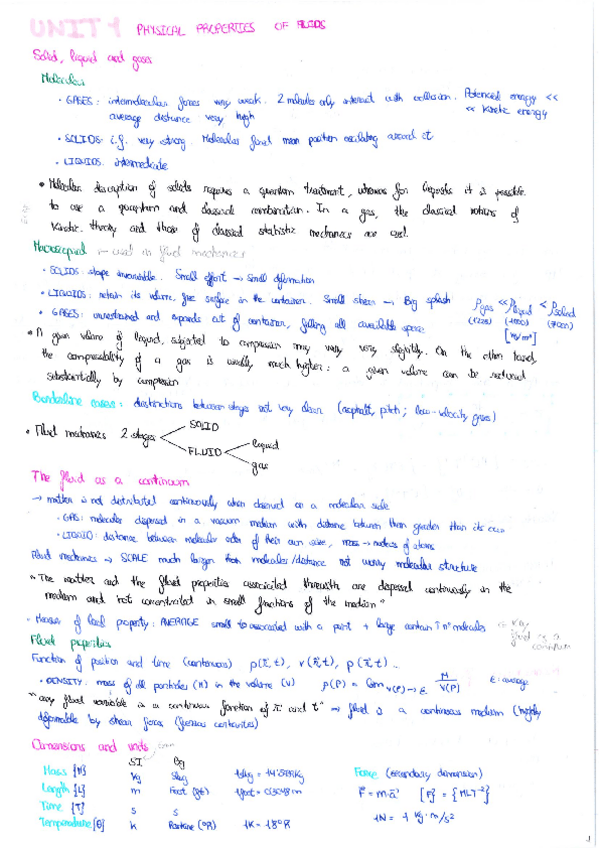 UNIT 1 PHYSICAL PROPERTIES OF FLUIDS
Solid, liquid and gases
Molecular
· GASES: intermolecular forces very weak. 2 molecules only interact with collision. Potencial energy <<
average distance very high << Kinetic energy
· SOLIDS: i.f. very strong. Molecules fixed mean position oscilating around it
· LIQUIDS: intermediate
• Molecular description of solids requires a quantum treatment, whereas for liquids it is possible
to use a quantum and classical combination. In a gas, the classical notions of
Kinetic theory and those of classical statistic mechanics are used.
Macroscopical used in fluid mechanics
· SOLIDS: shape invariable. Small effort → small deformation
· LIQUIDS: retain its volume, free surface in the container. Small shear → Big splash ρgas << ρliquid < ρsolid
· GASES: unrestrained and expands out of container, filling all available space (1000)
[kg/m³]
• A given volume of liquid, subjected to compression may vary very slightly. On the other hand,
the compressibility of a gas is usually much higher: a given volume can be reduced
substantially by compression
Borderline cases: distinctions between stages not very clear (asphalt, pitch; low-velocity gases)
• Fluid mechanics 2 stages SOLID
FLUID liquid
gas
The fluid as a continuum
→ matter is not distributed continuously when observed on a molecular scale
· GAS: molecules dispersed in a vacuum medium with distance between them greater than its
· LIQUID: distance between molecules order of their own size, mass → nucleus of atoms
Fluid mechanics → SCALE much larger than molecules/distance not worry molecular structure
"The matter and the fluid properties associated therewith are dispersed continuously in the
medium and not concentrated in small fractions of the medium"
· Measure of local property: AVERAGE small to associated with a point + large contain nº molecules
fluid is a
continuum
Fluid properties
Function of position and time (continuous) ρ(x⃗,t), v(x⃗,t), p(x⃗,t)..
· DENSITY: mass of all particles (M) in the volume (V) ρ(P) = lim V(P)→ε M/V(P) ε: average
"any fluid variable is a continuous function of x⃗ and t" → fluid is a continuous medium (highly
deformable by shear forces (viscous continuities)
Dimensions and units
S.I. Eng
Mass {M} kg Slug 1slug = 14'59Kg Force (secondary dimension)
Length {L} m Foot (ft) 1foot = 0'3048m F⃗ = m·a⃗ [F] = {MLT⁻²}
Time {T} s s 1N = 1 kg·m/s²
Temperature {θ} K Rankine (ºR) 1K = 1'8ºR
1